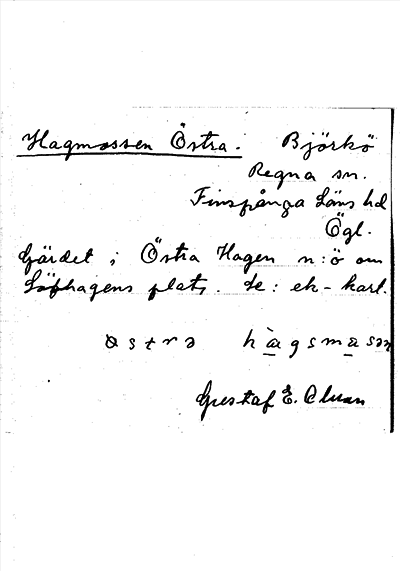 Hagmossen Östra. Björkö
Regna sn.
Finspånga Läns hd
Ögl.
Gärdet i Östra Hagen n:ö om
Löfhagens plats. Se: ek-karl.
hàgsmasən
Gustaf E.